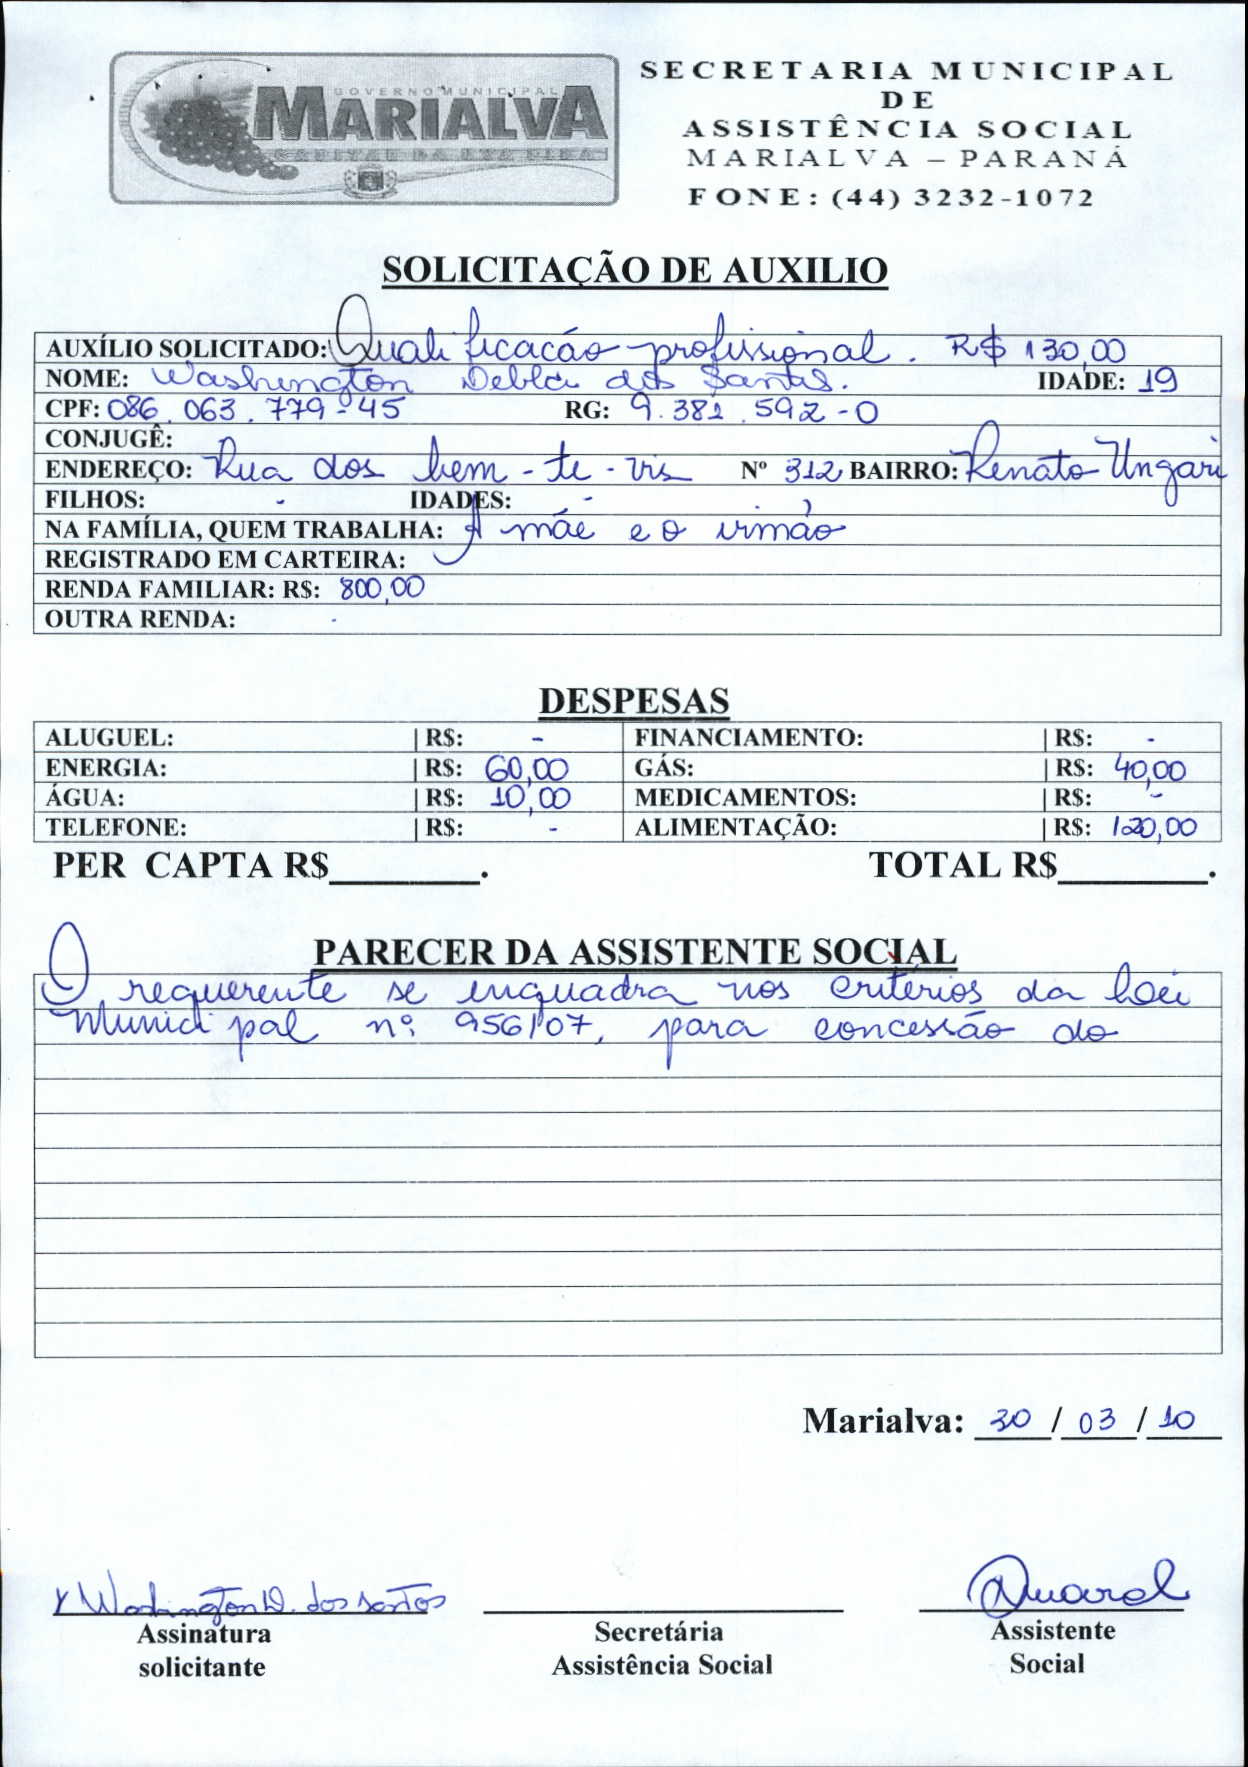 GOVERNO MUNICIPAL
MARIALVA
CAPITAL DA UVA FINA
SECRETARIA MUNICIPAL
DE
ASSISTÊNCIA SOCIAL
MARIALVA – PARANÁ
FONE: (44) 3232-1072
SOLICITAÇÃO DE AUXILIO
AUXÍLIO SOLICITADO: Qualificacão profissional. R$ 130,00
NOME: Washington Debla dos Santos. IDADE: 19
CPF: 086.063.779-45 RG: 9.381.592-0
CONJUGÊ:
ENDEREÇO: Rua dos bem-te-vis Nº 312 BAIRRO: Renato Ungari
FILHOS: - IDADES: -
NA FAMÍLIA, QUEM TRABALHA: A mãe e o irmão
REGISTRADO EM CARTEIRA:
RENDA FAMILIAR: R$: 800,00
OUTRA RENDA: -
DESPESAS
ALUGUEL: | R$: - FINANCIAMENTO: | R$: -
ENERGIA: | R$: 60,00 GÁS: | R$: 40,00
ÁGUA: | R$: 10,00 MEDICAMENTOS: | R$: -
TELEFONE: | R$: - ALIMENTAÇÃO: | R$: 120,00
PER CAPTA R$________. TOTAL R$________.
PARECER DA ASSISTENTE SOCIAL
O requerente se enquadra nos critérios da Lei
Municipal nº 956/07, para concessão do
Marialva: 30 / 03 / 10
x Washington D. dos santos
Assinatura Secretária Assistente
solicitante Assistência Social Social